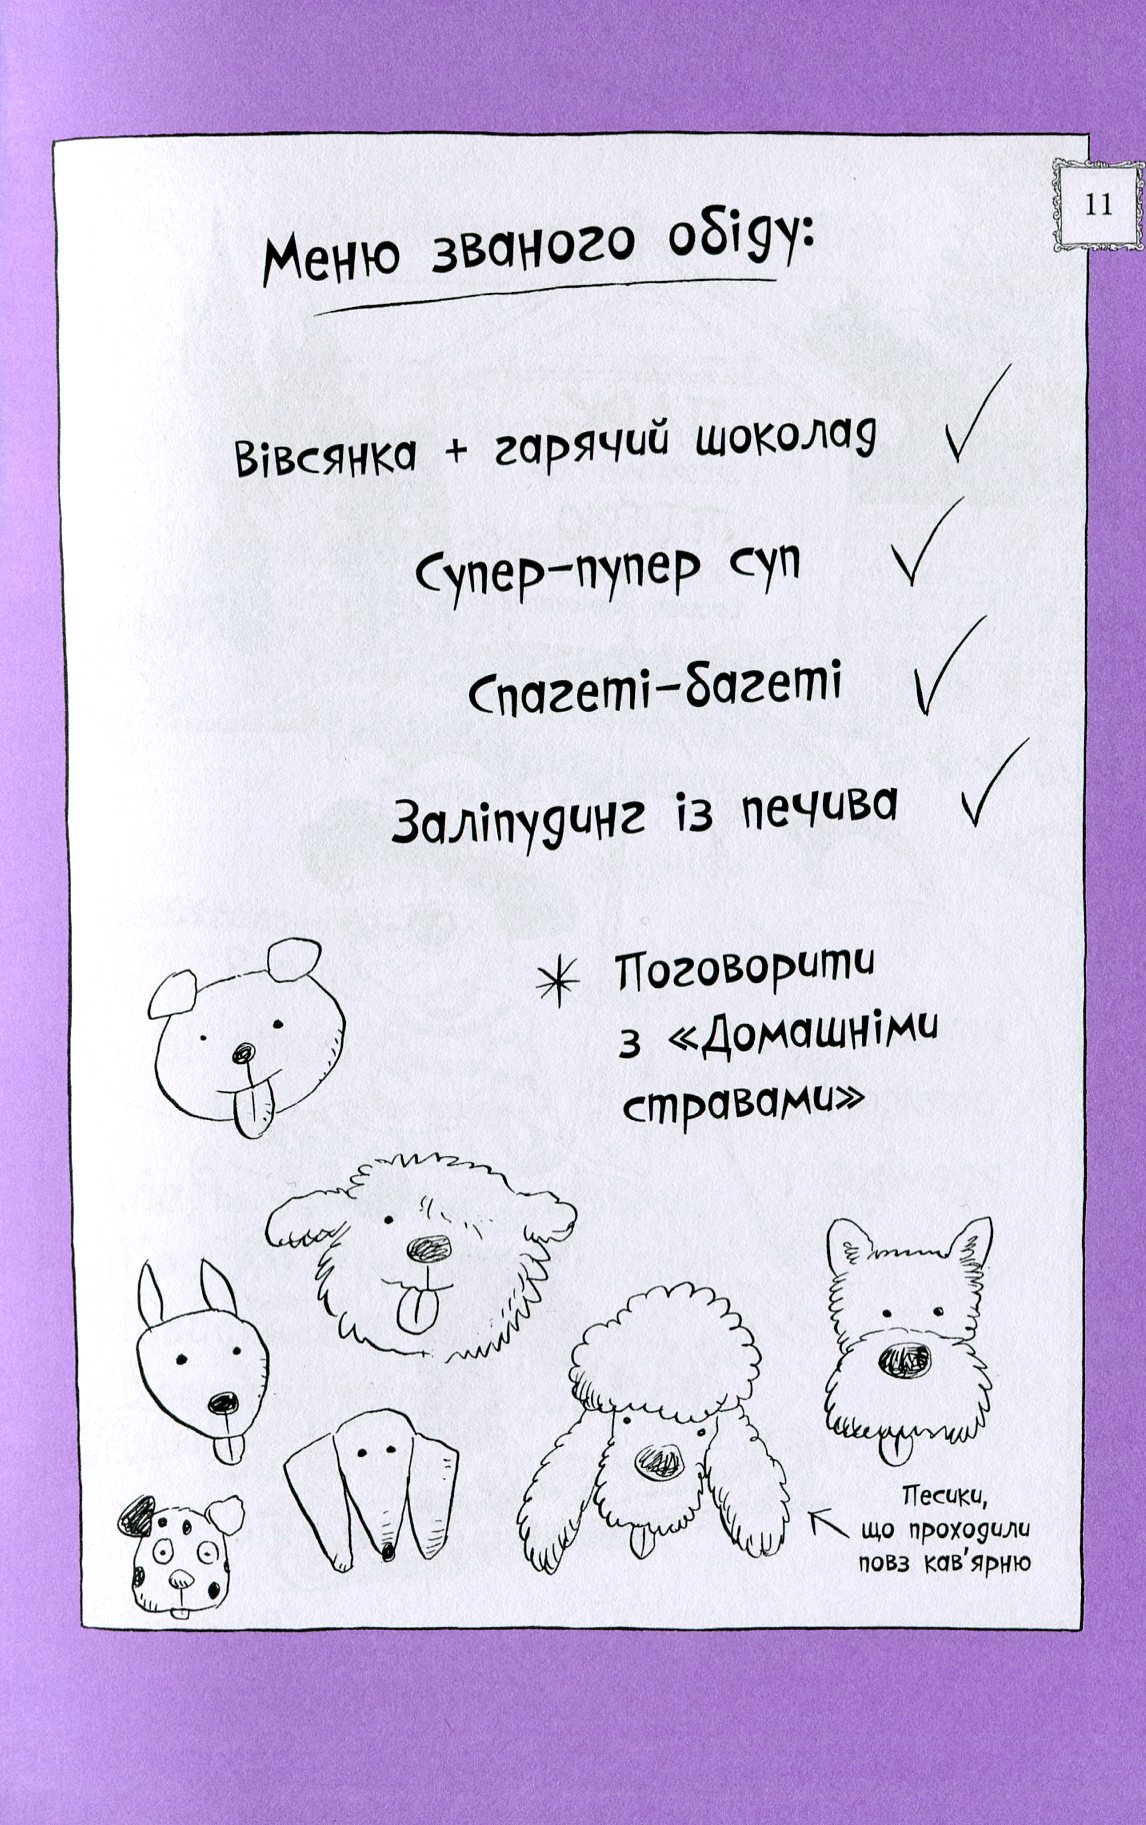 11
Меню званого обіду:
Вівсянка + гарячий шоколад
Супер-пупер суп
Спагеті-багеті
Заліпудинг із печива
* Поговорити
з «Домашніми
стравами»
Песики,
що проходили
повз кав'ярню